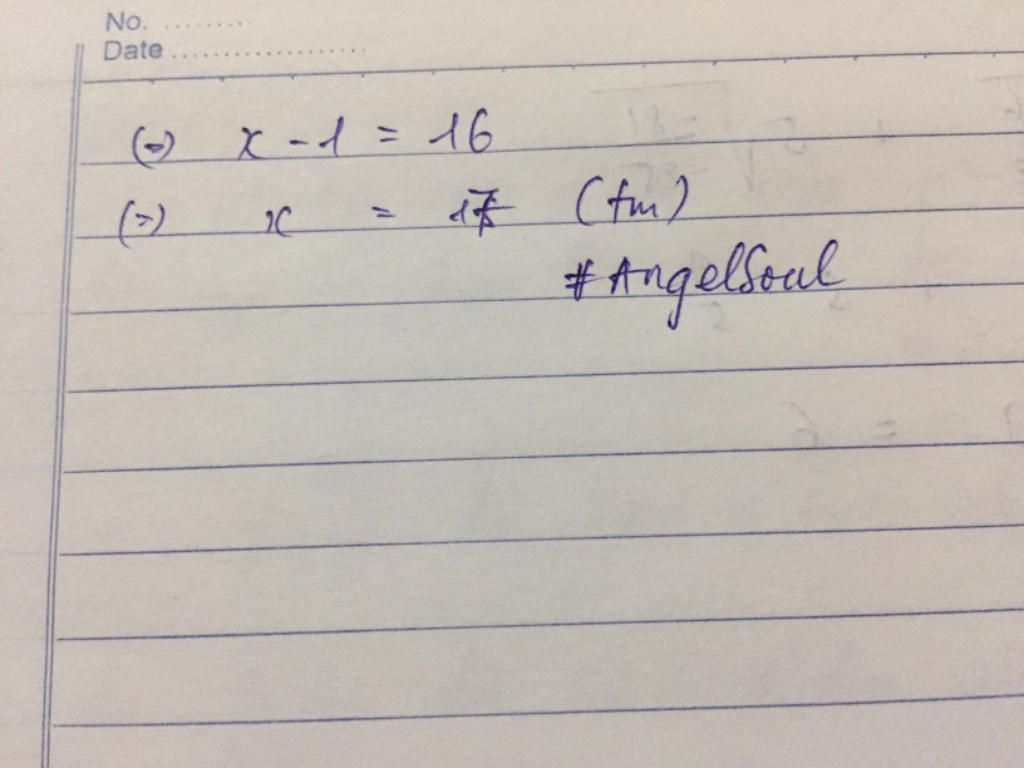 No. ..........
Date ....................
(=) x - 1 = 16
(=) x = 17 (tm)
#AngelSoul